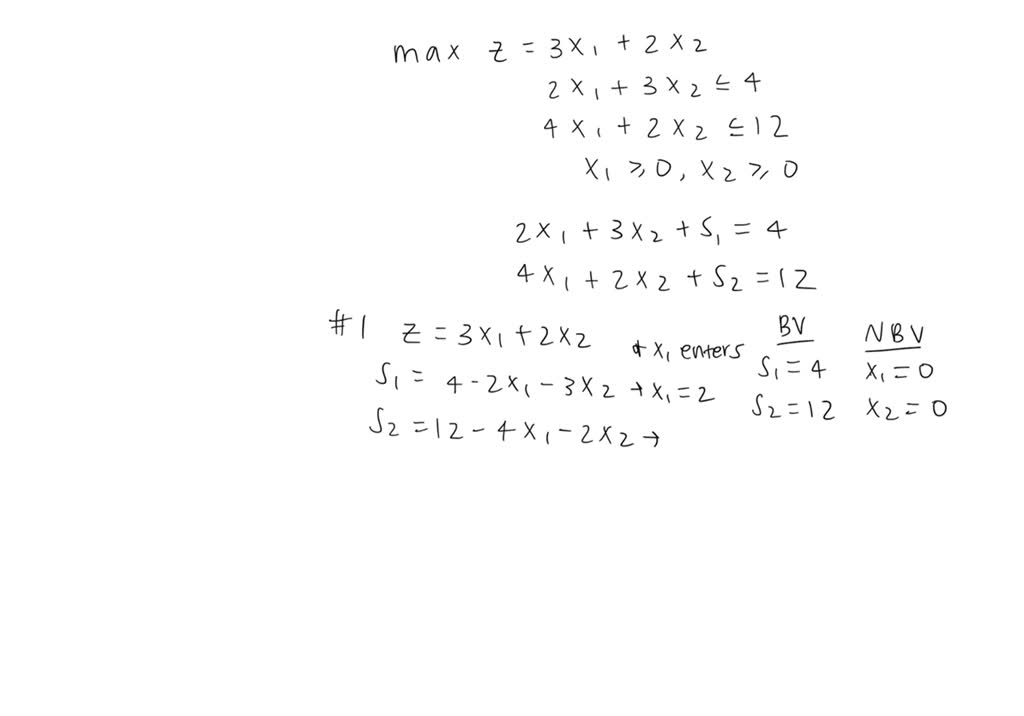 max z = 3x₁ + 2x₂
2x₁ + 3x₂ ≤ 4
4x₁ + 2x₂ ≤ 12
x₁ ≥ 0, x₂ ≥ 0
2x₁ + 3x₂ + S₁ = 4
4x₁ + 2x₂ + S₂ = 12
#1 z = 3x₁ + 2x₂ → x₁ enters BV NBV
S₁ = 4 - 2x₁ - 3x₂ → x₁ = 2 S₁ = 4 x₁ = 0
S₂ = 12 - 4x₁ - 2x₂ → S₂ = 12 x₂ = 0